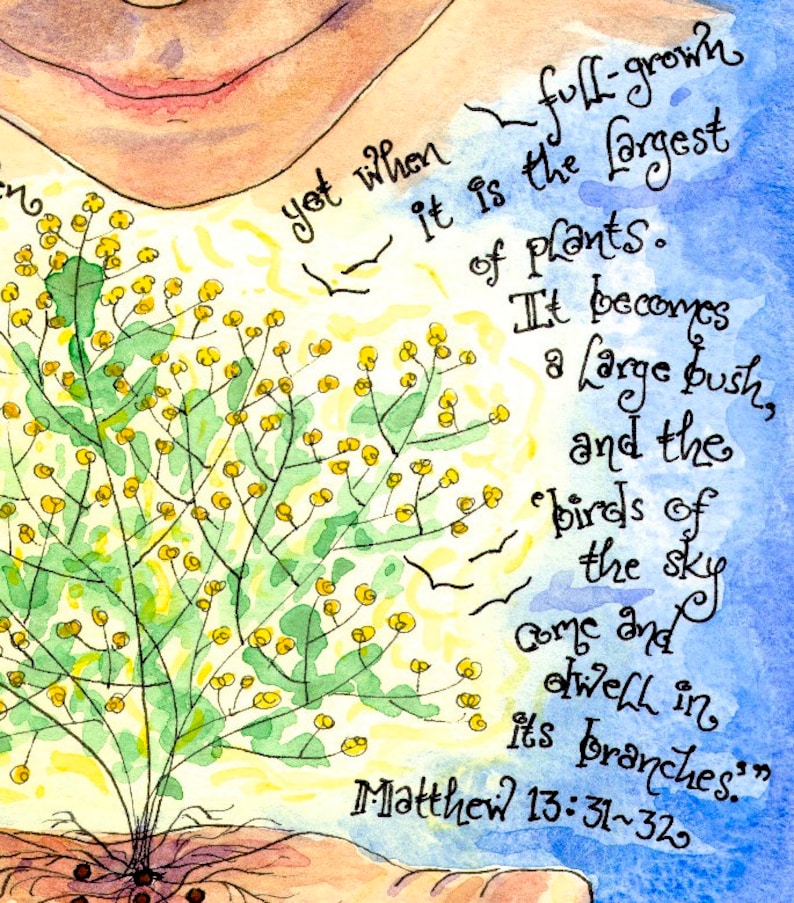 yet when full-grown
it is the largest
of plants.
It becomes
a large bush,
and the
‘birds of
the sky
come and
dwell in
its branches.’”
Matthew 13:31~32